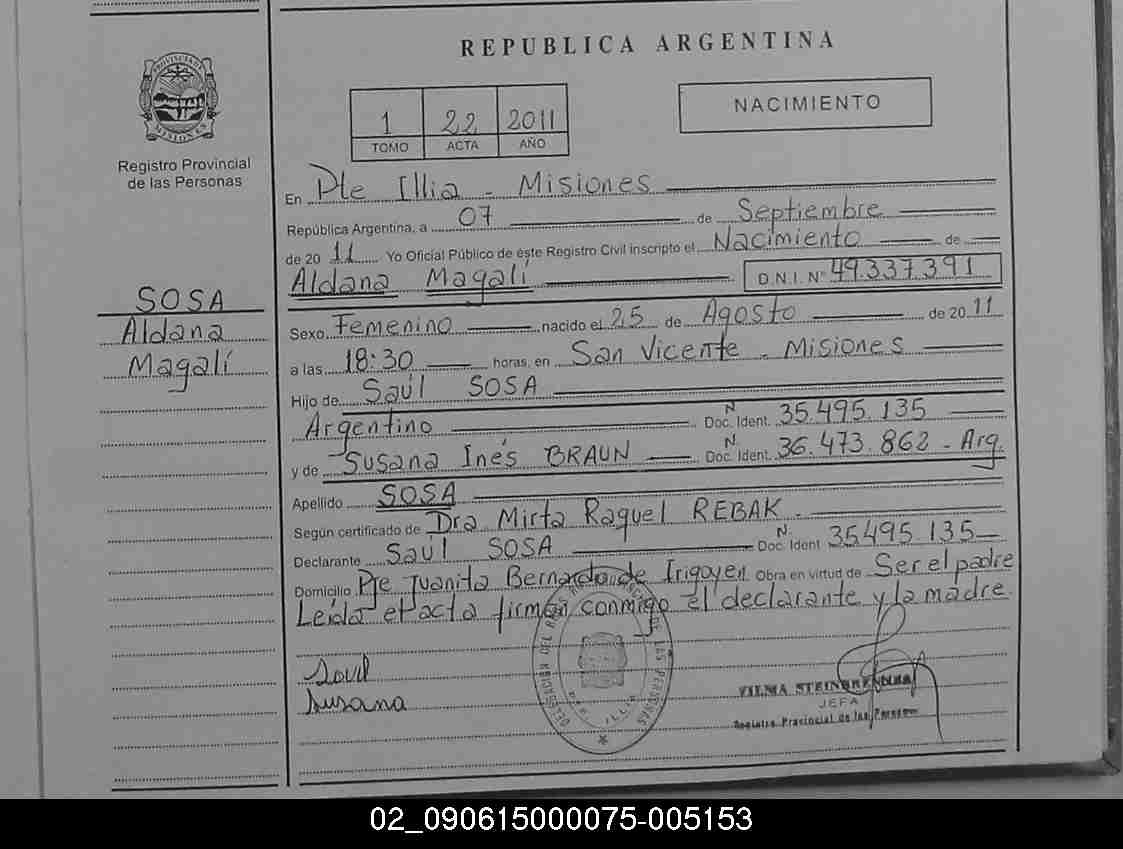 REPUBLICA ARGENTINA
PROVINCIA DE
MISIONES
Registro Provincial
de las Personas
1 22 2011
TOMO ACTA AÑO
NACIMIENTO
SOSA
Aldana
Magalí
En Pte Illia - Misiones
República Argentina, a 07 de Septiembre
de 20 11 Yo Oficial Público de este Registro Civil inscripto el Nacimiento de
Aldana Magalí D.N.I. Nº 49.337.391
Sexo Femenino nacido el 25 de Agosto de 20 11
a las 18:30 horas, en San Vicente - Misiones
Hijo de Saúl SOSA
Argentino Doc. Ident. N 35.495.135
y de Susana Inés BRAUN Doc. Ident. N. 36.473.862 - Arg.
Apellido SOSA
Según certificado de Dra Mirta Raquel REBAK -
Declarante Saúl SOSA Doc. Ident N. 35495.135
Domicilio Pje Juanita Bernardo de Irigoyen Obra en virtud de Ser el padre
Leída el acta firman conmigo el declarante y la madre.
Saul
Susana
VILMA STEINBRENNER
JEFA
Registro Provincial de las Personas
02_090615000075-005153